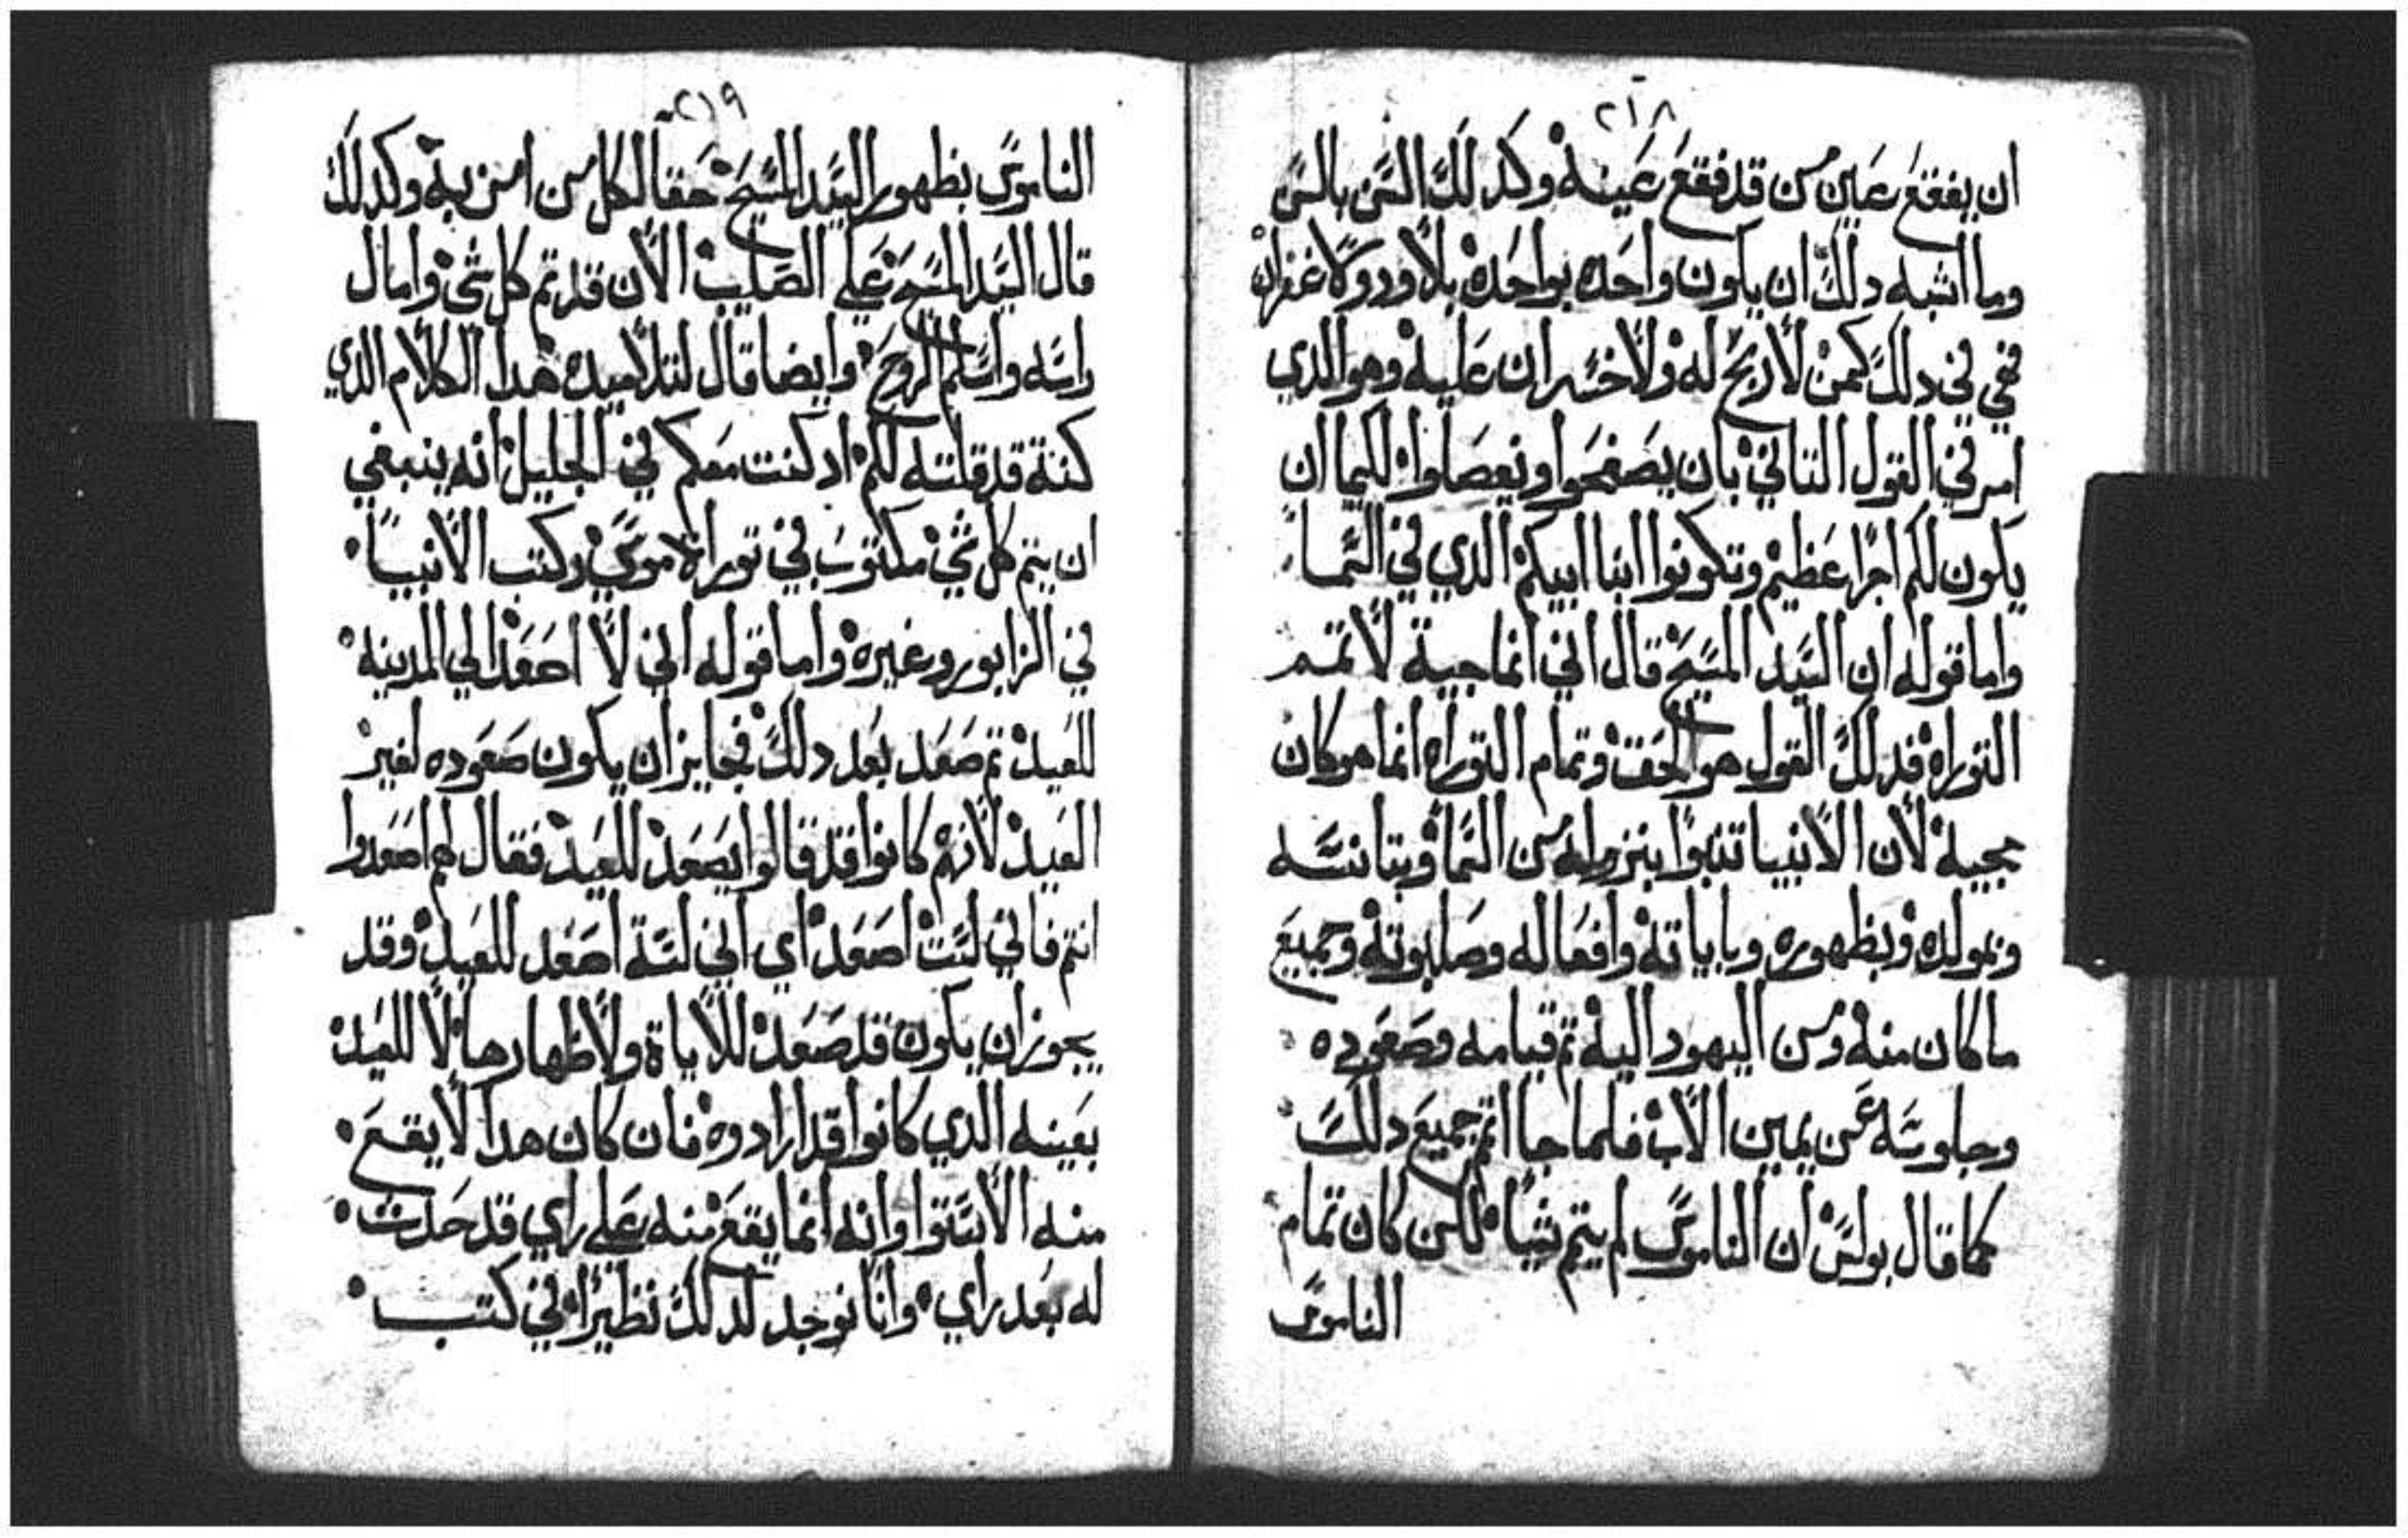 ٢١٨
ان يفقع عين من قد فقع عينه وكدلك السن بالسن
وما اشبه دلك ان يكون واحده بواحده بلا ورد ولا غفران
ففي دلك كمن لا ربح له ولا خسران عليه وهو الدي
امر في القول التاني بان يصفحوا ويعصلوا لكيما ان
يكون لكم اجرا عظيم وتكونوا ابنا ابيكم الدي في السما
واما قوله ان السيد المسيح قال اني انما جيية لاتمتم
التوراه فدلك القول هو الحق وتمام التوراه انما هو كان
مجييه لان الانبيا تنبوا بنزوله من السما وبتانسه
وبمولده وبظهوره وباياته وافعاله وصلبوته وجميع
ما كان منه ومن اليهود اليه تم قيامه وصعوده
وجلوسه عن يمين الاب فلما جا اتم جميع دلك
كما قال بولس ان الناموس لم يتم شيا لكن كان تمام
الناموس
٢١٩
الناموس بظهور السيد المسيح حقا لكل من امن به وكدلك
قال السيد المسيح على الصليب الان قد تم كل شي وامال
راسه واسلم الروح وايضا قال لتلاميده هدا الكلام الدي
كنة قد قلته لكم اد كنت معكم في الجليل انه ينبغي
ان يتم كل شي مكتوب في توراة موسي وكتب الانبيا
في الزابور وغيره واما قوله اني لا اصعد الي المدينه
للعيد تم صعد بعد دلك فجايز ان يكون صعوده لغير
العيد لانهم كانوا قد قالوا يصعد للعيد فقال لهم اصعدوا
انتم فاني لست اصعد اي اني لسة اصعد للعيد وقد
يجوز ان يكون قد صعد للاياة ولاظهارها لا للعيد
بعينه الدي كانوا قد ارادوه فان كان هدا لا يقع
منه الاستوا وانه انما يقع منه على راي قد حدت
له بعد راي وانا نوجد لدلك نظيرا في كتب